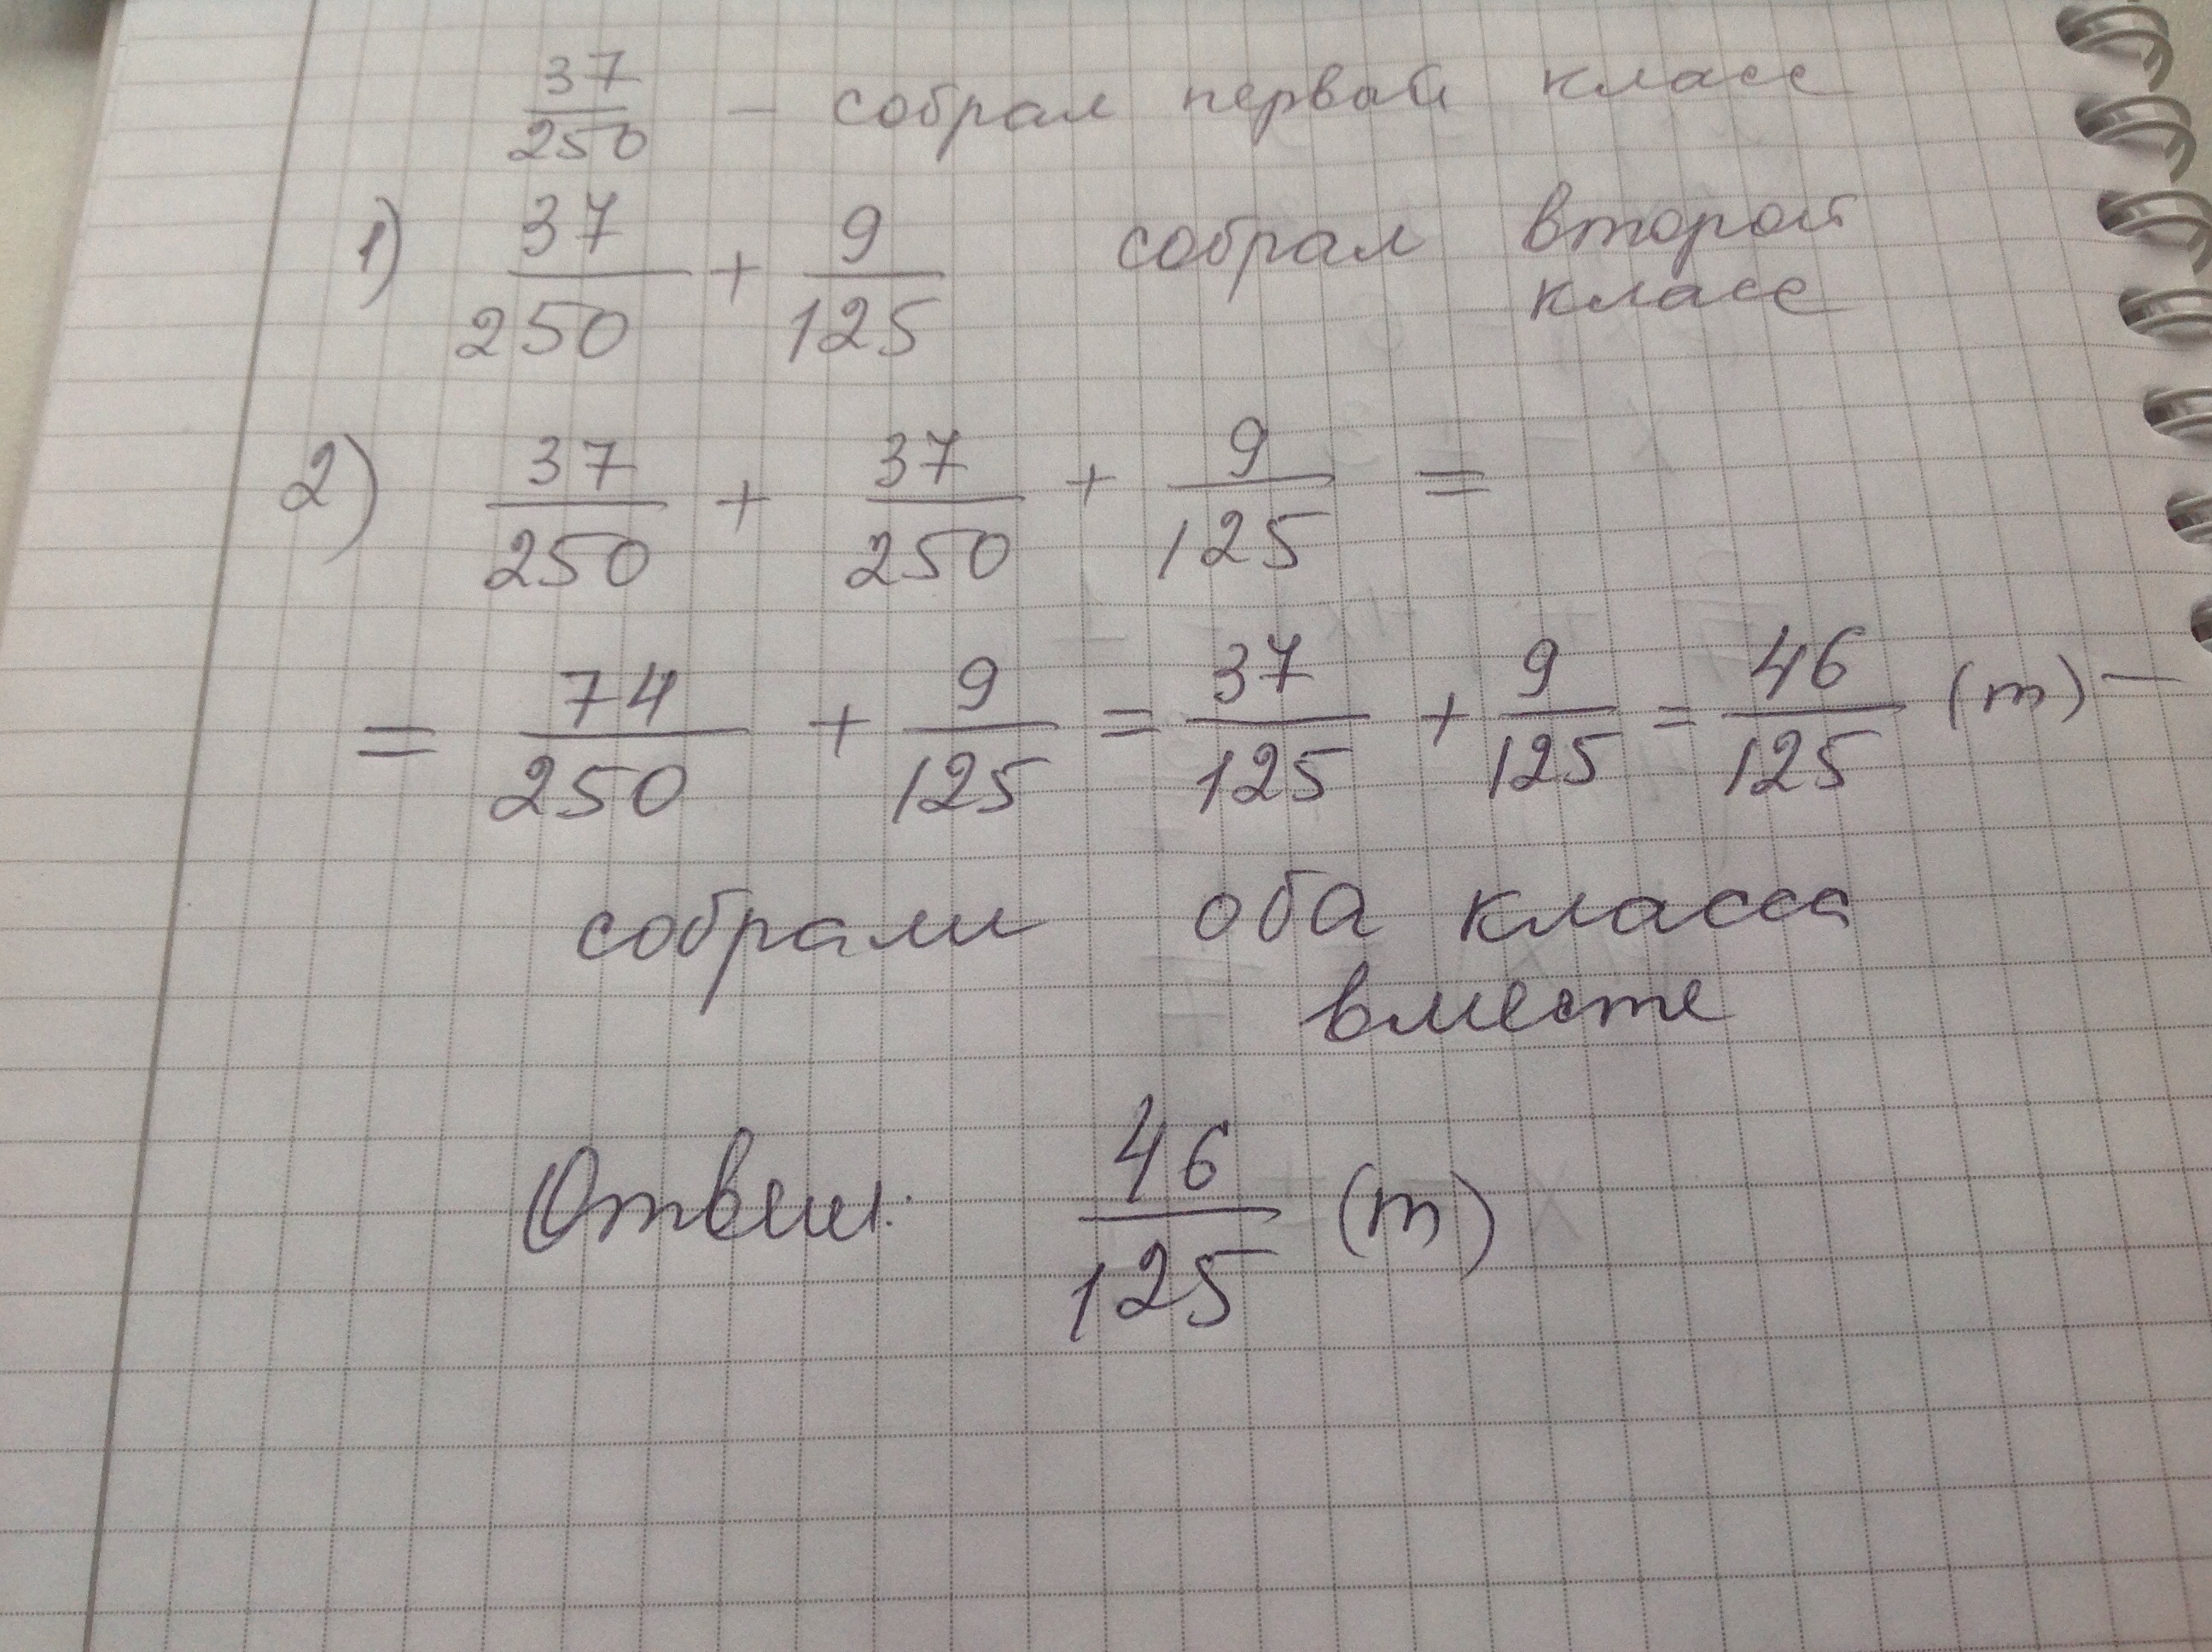 37/250 - собрал первый класс
1) 37/250 + 9/125 собрал второй
класс
2) 37/250 + 37/250 + 9/125 =
= 74/250 + 9/125 = 37/125 + 9/125 = 46/125 (т) -
собрали оба класса
вместе
Ответ: 46/125 (т)